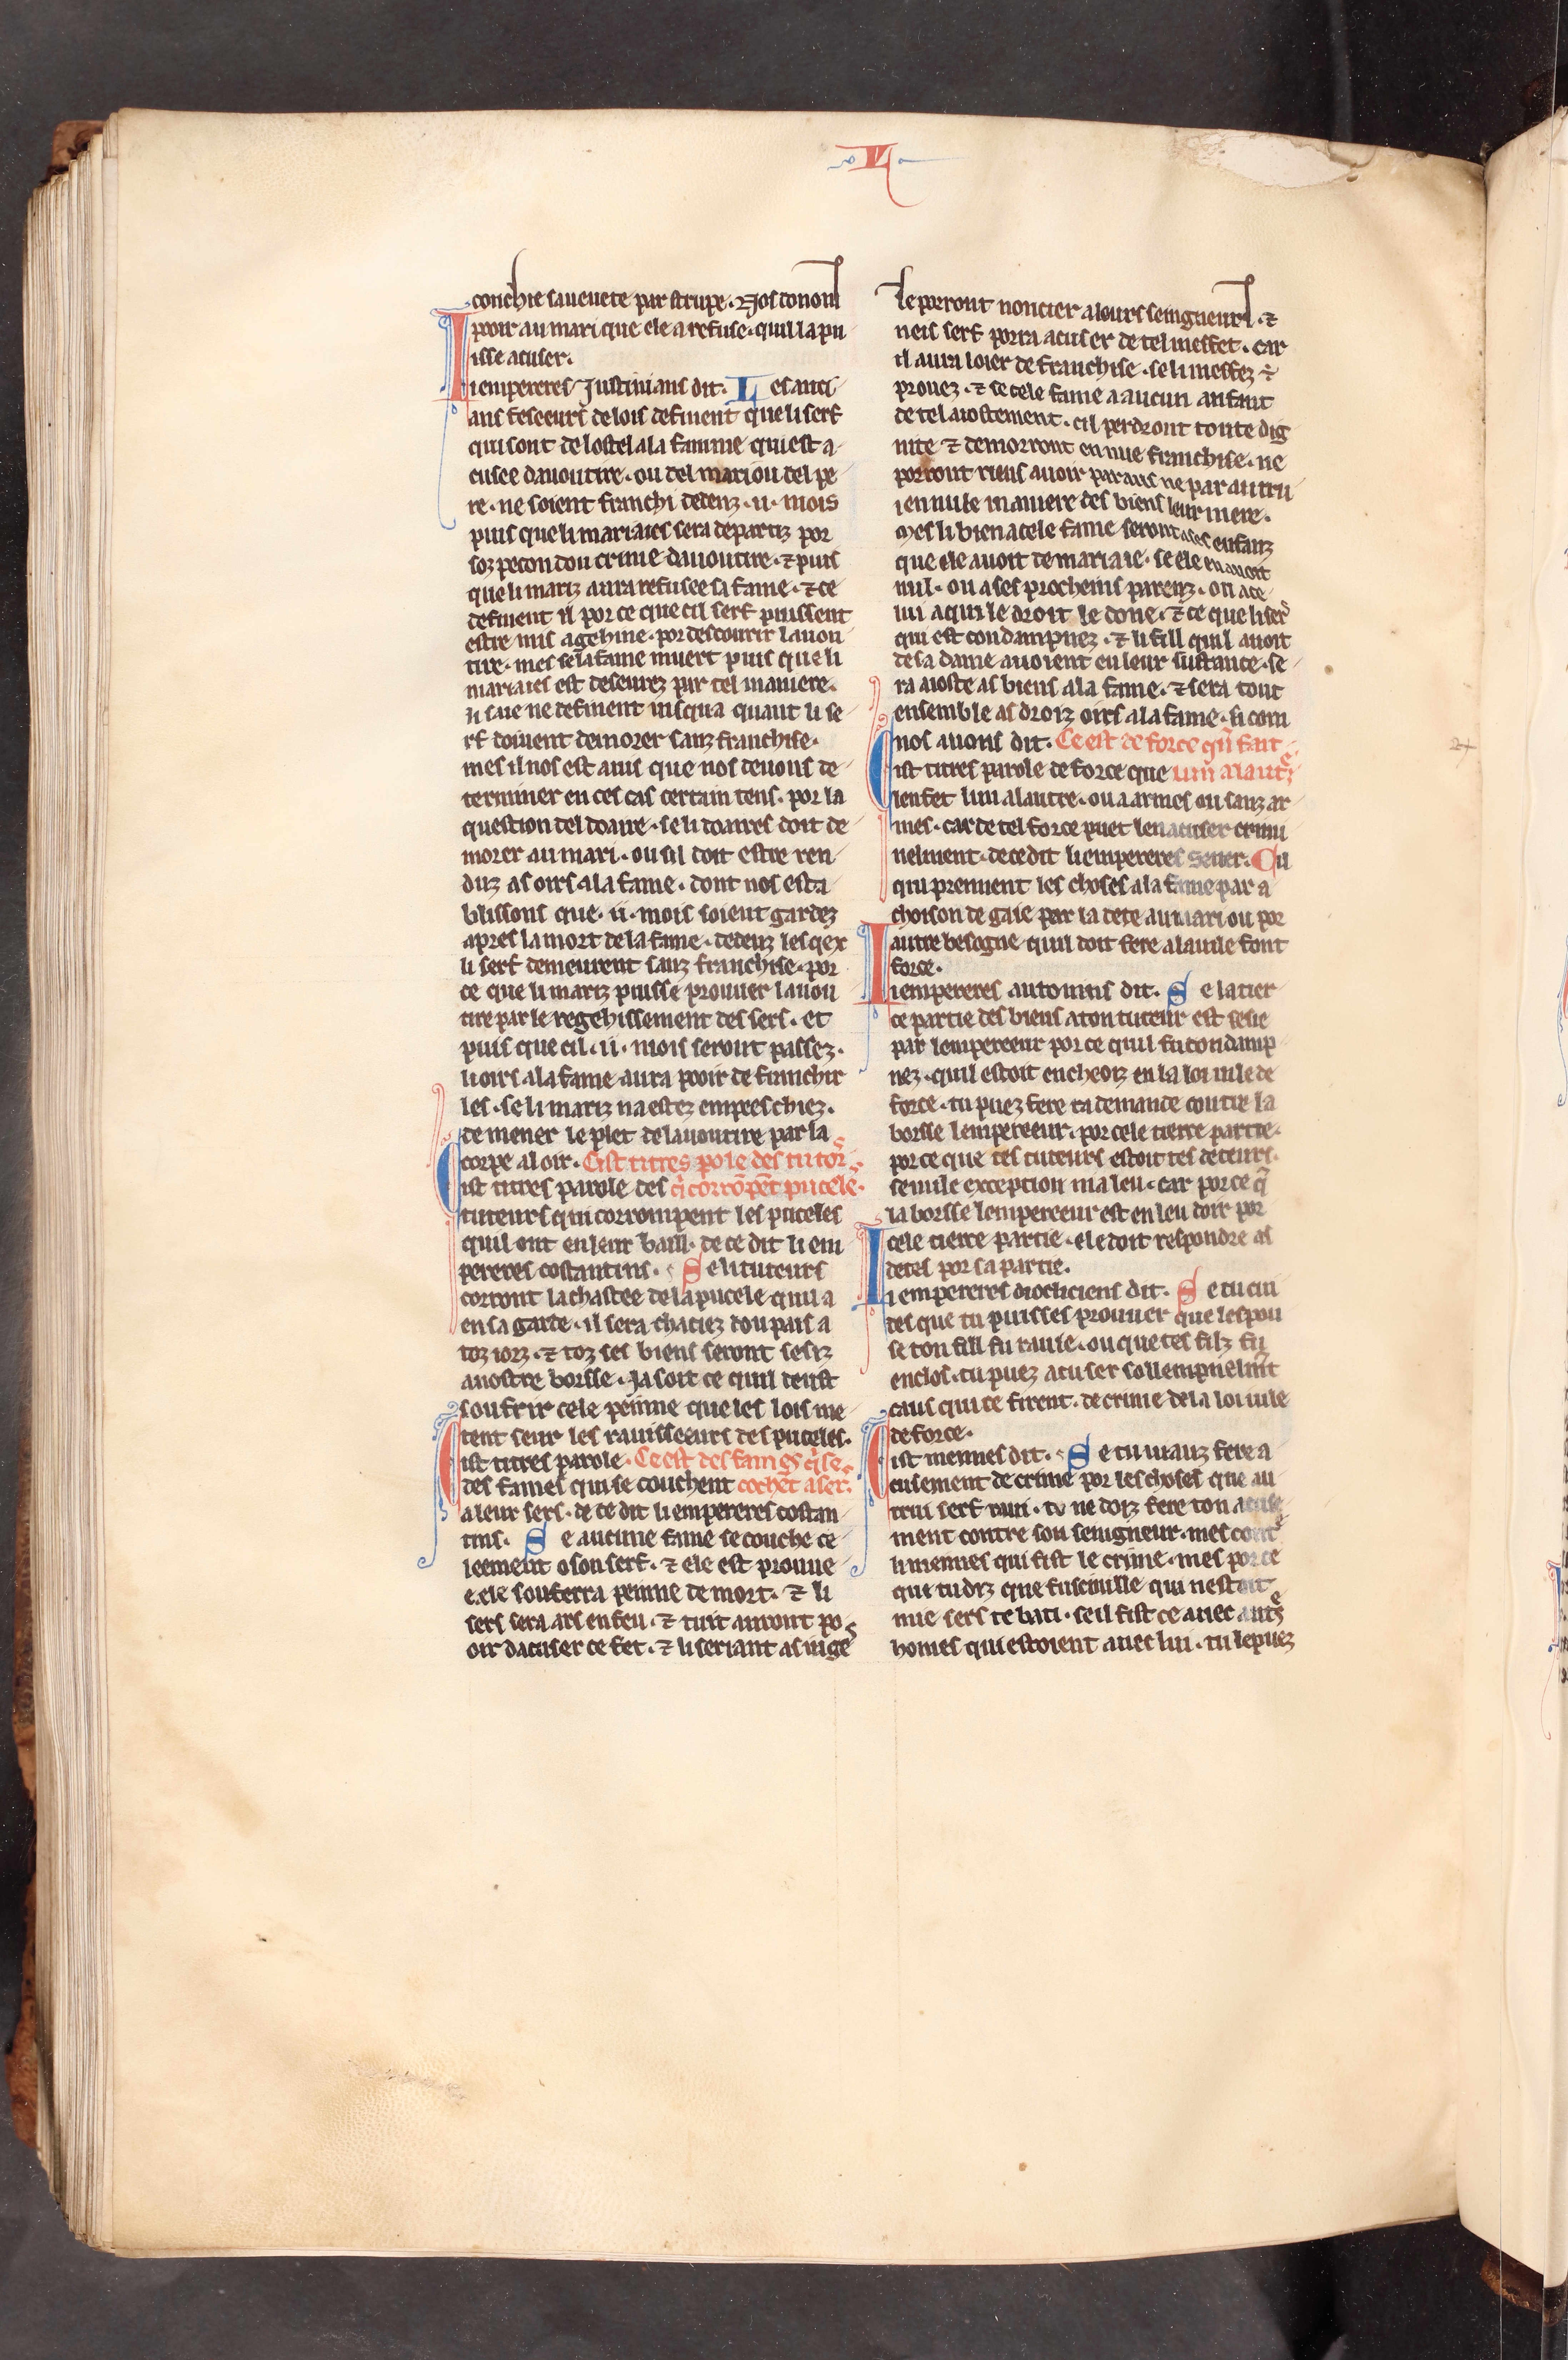 .VI.
conchie sa ueuete par strupe. Nos donons
pooir au mari que ele a refuse. quil la pu
isse acuser.
Li empereres Justinians dit. Les anci
ans feseeurs de lois definent que li serf
qui sont de lostel a la famme qui est a
cusee dauoutire. ou del mari ou del pe
re. ne soient franchi dedenz .ii. mois
puis que li mariaies sera departiz por
soz pecon dou crime dauoutire. ⁊ puis
que li mariz aura refusee sa fame. ⁊ ce
definent il por ce que cil serf puissent
estre mis a gehine. por descourir lauou
tire. mes se la fame muert puis que li
mariaies est deseurez par tel maniere.
il sue ne definent iusqua quant li se
rf doiuent demorer sanz franchise.
mes il nos est auis que nos deuons de
terminer en ces cas certain tens. por la
question del doaire. se li doaires doit de
morer au mari. ou sil doit estre ren
duz as oirs a la fame. dont nos esta
blissons que .ii. mois soient gardez
apres la mort de la fame. dedenz les qex
li serf demeurent sanz franchise. por
ce que li mariz puisse prouuer lauou
tire par le regehissement des sers. et
puis que cil .ii. mois seront passez.
li oirs a la fame aura pooir de franchir
les. se li mariz na estez empeeschiez.
de mener le plet de lauoutire par la
corpe al oir. Cist titres pole des tutors
Cist titres parole des q̇ corrōpēt pucele.
tuteurs qui corrompent les puceles
quil ont en leur baill. de ce dit li em
pereres costantins. Se li tuteurs
corront la chastee de la pucele quil a
en sa garde. il sera chaciez dou pais a
toz iorz. ⁊ toz ses biens seront sesiz
a nostre borsse. Ja soit ce quil deust
soufrir cele peinne que les lois me
tent seur les rauisseeurs des puceles.
Cist titres parole. Ce est des fames q̇ se
des fames qui se couchent cochēt a sers.
a leur sers. de ce dit li empereres costan
tins. Se aucune fame se couche ce
leement o son serf. ⁊ ele est prouue
e. ele souferra peinne de mort. ⁊ li
sers sera ars en feu. ⁊ tuit auront po
oir dacuser ce fet. ⁊ li seriant as iuges
le porront noncier a leurs seingneurs. ⁊
neis serf porra acuser de tel meffet. car
il aura loier de franchise. se li meffez ÷
prouez. ⁊ se cele fame a aucun anfant
de tel aiostement. cil perdront toute dig
nite ⁊ demorront en nue franchise. ne
porront riens auoir par aus ne par autru
i en nule maniere des biens leur mere.
Mes li bien a cele fame seront a ses enfanz
que ele auoit de mariaie. se ele en auoit
nul. ou a ses procheins parenz. ou a ce
lui a qui le droit le done. ⁊ ce que li sers
qui est condampnez. ⁊ li fill quil auoit
de sa dame auoient en leur sustance. se
ra aioste as biens a la fame. ⁊ sera tout
ensemble as droiz oirs a la fame. si com
nos auons dit. Ce est de force qu̇ fait
Cist titres parole de force que lun a lautre
len fet lun a lautre. ou a armes ou sanz ar
mes. car de tel force puet len acuser crimi
nelment. de ce dit li empereres Seuer. Cil
qui prennent les choses a la fame par a
choison de gaie par la dete au mari ou por
autre besogne quil doit fere a la uile font
force.
Li empereres antonins dit. Se la tier
ce partie des biens a ton tuteur est sesie
par lempereeur por ce quil fu condamp
nez. quil estoit encheoiz en la loi iule de
force. tu puez fere ta demande contre la
borsse lempereeur. por cele tierce partie.
por ce que tes tuteurs estoit tes deteurs.
se nule exception nia leu. car por ce q̄
la borsse lempereeur est en leu doir por
cele tierce partie. ele doit respondre as
detes por sa partie.
Li empereres diocliciens dit. Se tu cui
des que tu puisses prouuer que lespou
se ton fill fu rauie. ou que tes filz fu
enclos. tu puez acuser sollempnelmt̄
caus qui ce firent. de crime de la loi iule
de force.
Cist meismes dit. Se tu uiauz fere a
cusement de crime por les choses que au
trui serf raui. tu ne doiz fere ton acuse
ment contre son seingneur. mes contre
li meismes qui fist le crime. mes por ce
que tu diz que fusciulle qui nestoit
mie sers te bati. se il fist ce auec autres
homes qui estoient auec lui. tu le puez